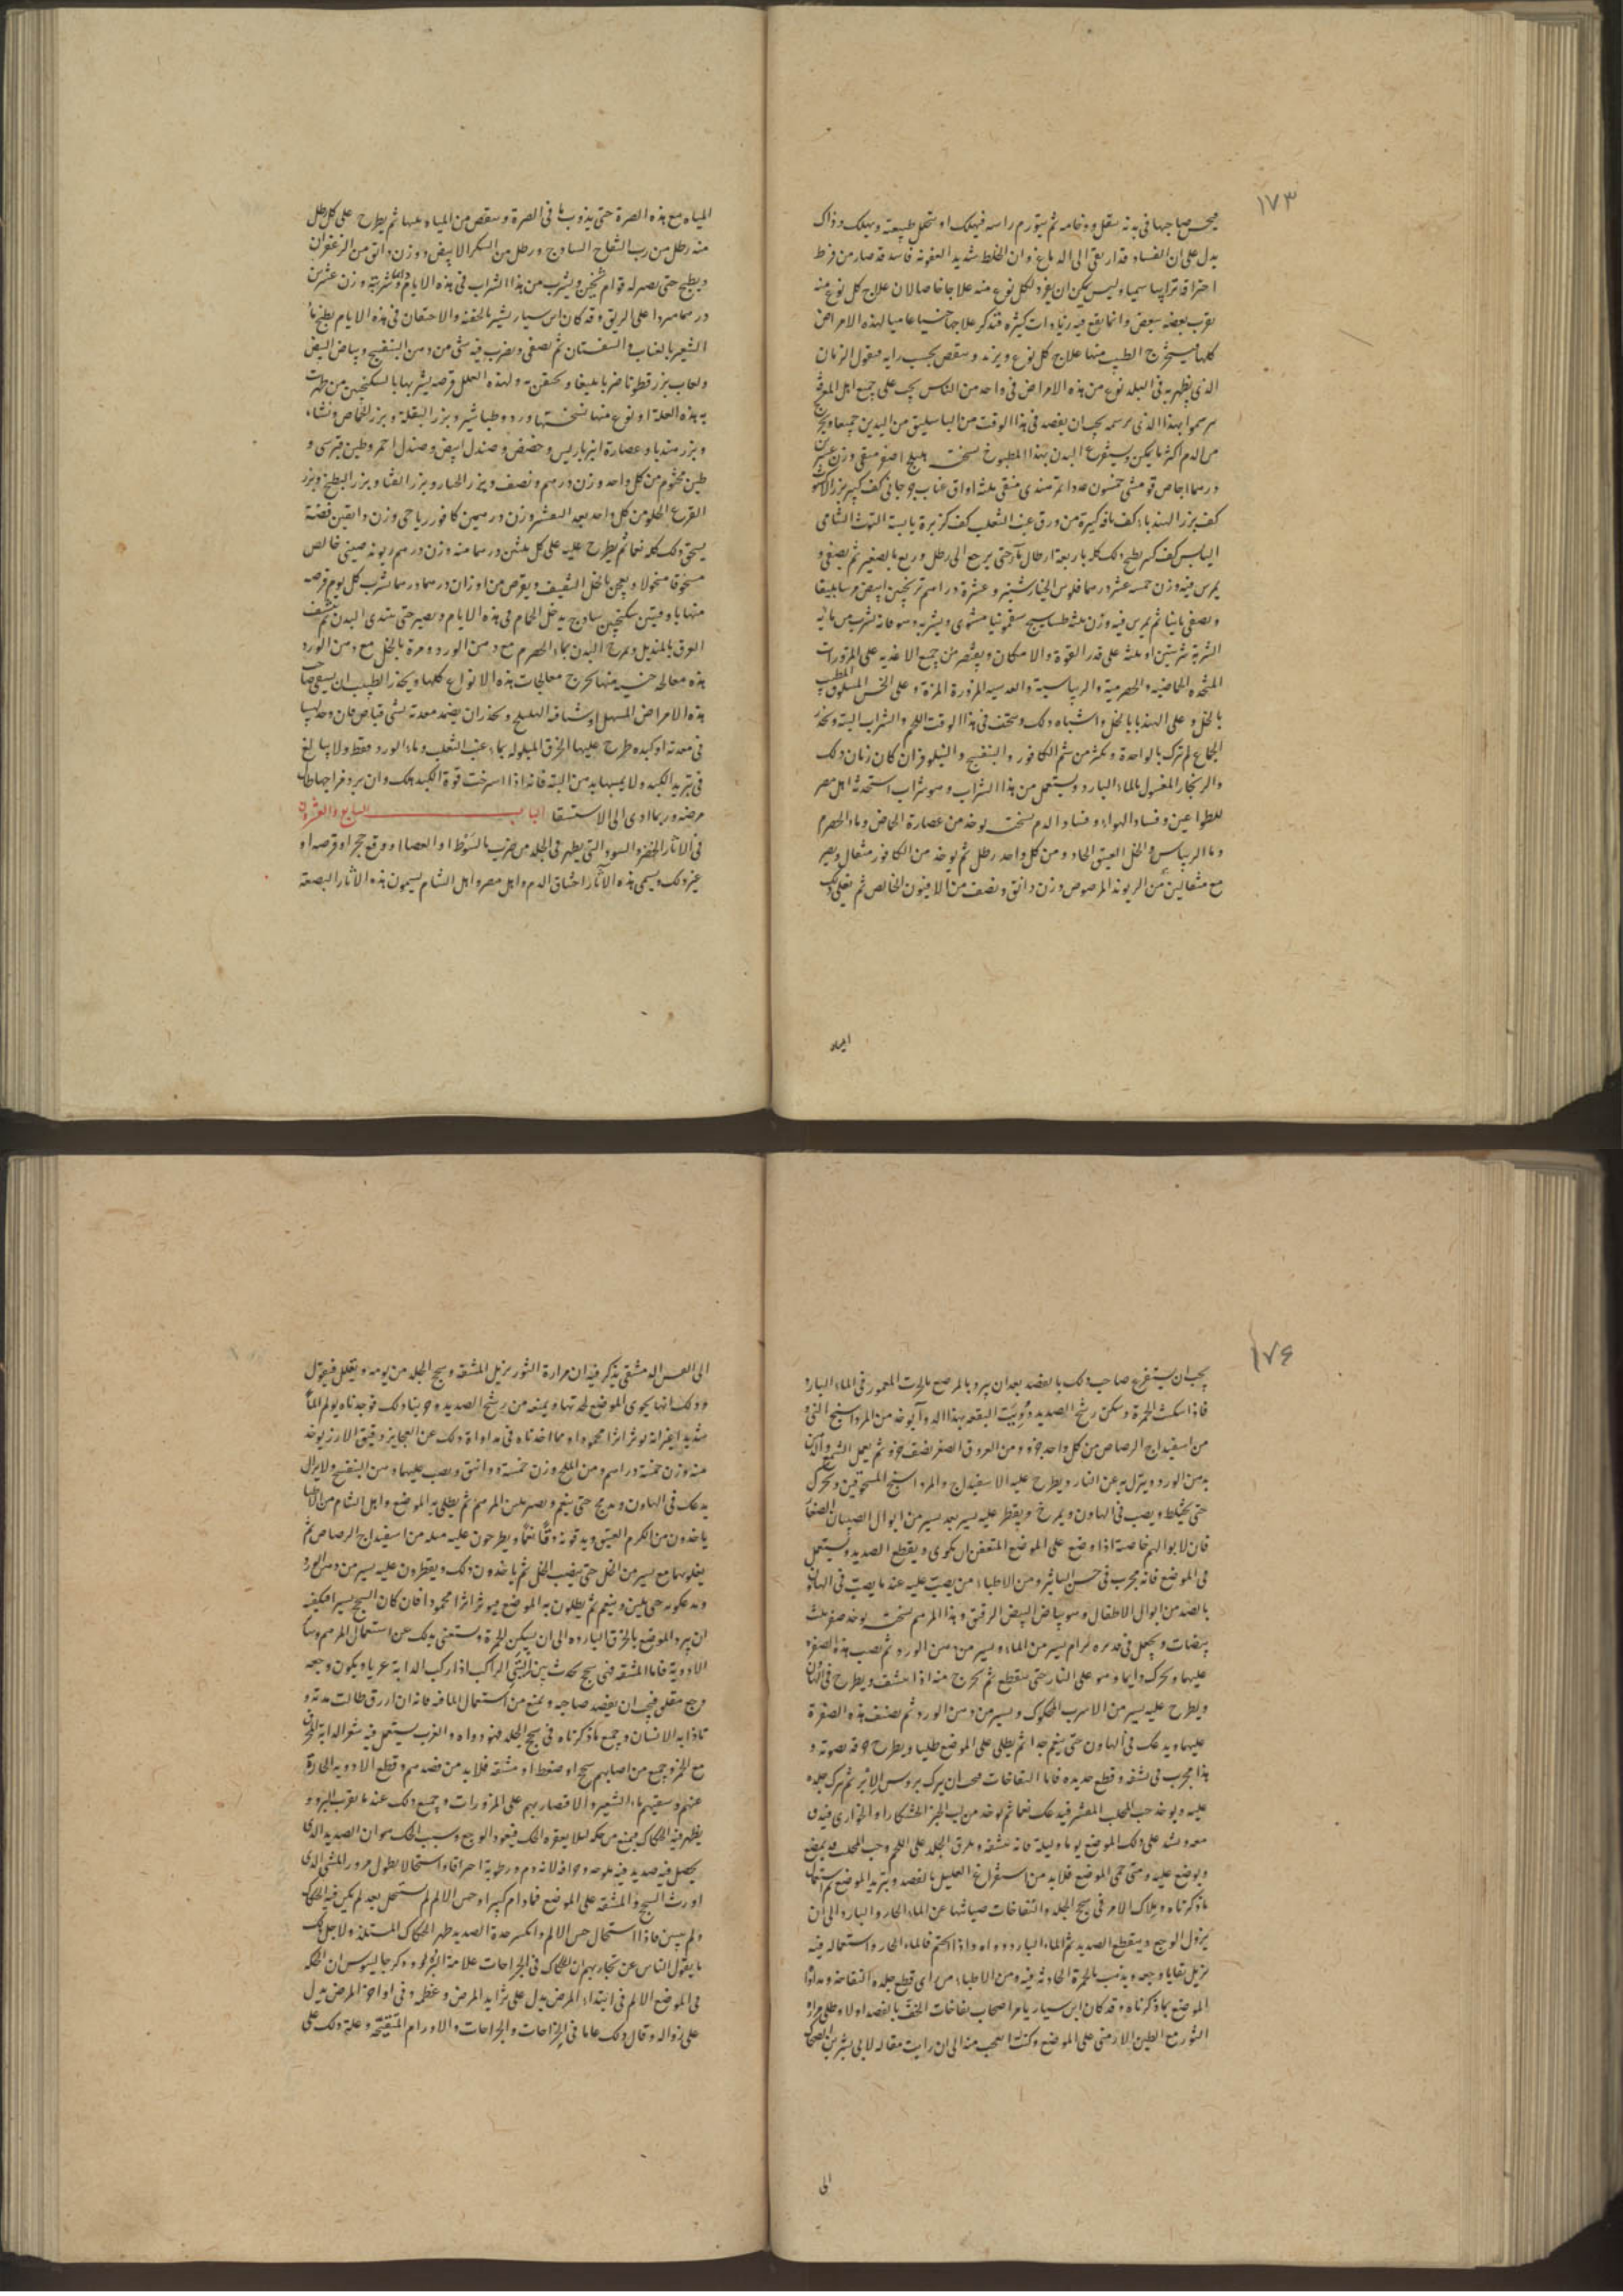 ١٧٣
صاحبها في بدنه بثقل ووخامه ثم يتورم راسه فيهلك او تنحل طبيعته ويهلك وذاك
يدل على ان الفساد قد ارتقى الى الدماغ وان الخلط شديد العفونه فاسد قد صار من فرط
احتراقه ترابيا سميا وليس يمكن ان نفرد لكل نوع منه علاجا خاصا لان علاج كل نوع منه
يقرب بعضه ببعض وانما يقع فيه زيادات كثيره فنذكر علاجا عاميا لهذه الامراض
كلها يستخرج الطبيب منها علاج كل نوع ويزيد وينقص بحسب رايه فنقول الزمان
الذى يظهر فيه فى البلد نوع من هذه الامراض فى واحد من الناس يجب على جميع اهل
يرسموا بهذا الذى نرسمه يجب ان يفصد فى هذا الوقت من الباسليق من اليدين جميعا
من الدم اكثر ما يمكن ويستفرغ البدن بهذا المطبوخ نسخته هليلج اصفر منقى وزن
درهما اجاص قومسى خمسون عددا تمر هندى منقى ثلثه اواق عناب جرجانى كف كبير بزر
كف بزر الهندباء كف باقه كبيرة من ورق عنب الثعلب كف كزبرة يابسة التوت الشامى
اليابس كف كبير يطبخ ذلك كله باربعة ارطال ماء حتى يرجع الى رطل وربع بالصغير ثم يصفى و
يمرس فيه وزن خمسه عشر درهما فلوس الخيارشنبر وعشرة دراهم ترنجبين ابيض
ويصفى ثانيا ثم يمرس فيه وزن ثلثه طساسيج سقمونيا مشوى ويشربه
الشربة شربتين او ثلثه على قدر القوة والامكان ويقتصر من جميع الاغذيه على المزورات
المتخذه الحماضيه والحصرمية والريباسية والعدسيه المزورة المزة وعلى الخس المسلوق
بالخل وعلى الهندبا بالخل واشباه ذلك فى هذا الوقت اللحم والشراب البته
الجماع لم ترك بالواحدة ويكثر من شم الكافور والبنفسج والنيلوفر ان كان زمان ذلك
المغسول بالماء البارد ويستعمل من هذا الشراب وهو شراب استحدثه اهل مصر
للطواعين وفساد الهواء وفساد الدم نسخته يوخذ من عصارة الحماض وماء الحصرم
وماء الريباس والخل العتيق الحاد ومن كل واحد رطل ثم يوخذ من الكافور مثقال
مع مثقالين من الريوند المرضوض وزن دانق ونصف من الافيون الخالص ثم يغلى
المياه
المياه مع هذه الصرة حتى يذوب ما فى الصرة وينقص من المياه ثلثها ثم يطرح على كل رطل
منه رطل من رب التفاح الساذج ورطل من السكر الابيض ووزن دانق من الزعفران
ويطبخ حتى يصير له قوام ثخين ويشرب من هذا الشراب فى هذه الايام وزن عشرين
درهما مبردا على الريق وقد كان ابن سيار يشير بالحقنه والاحتقان فى هذه الايام بطبخ ماء
الشعير بالعناب والسفستان ثم يصفى ويضرب فيه شى من دهن البنفسج وبياض البيض
ولعاب بزر قطونا ضربا بليغا ويحتقن به ولهذه العلل قرصه يشربها بالسكنجبين من ظهرت
به هذه العلة او نوع منها نسختها ورد وطباشير وبزر البقلة وبزر الحماض ونشاء
وبزر هندبا وعصارة انبرباريس وحضض وصندل ابيض وصندل احمر وطين قبرسى و
طين مختوم من كل واحد وزن درهم ونصف وبزر الخيار وبزر القثا وبزر البطيخ وبزر
القرع الحلو من كل واحد بعد التقشير وزن درهمين كافور رياحى وزن دانقين فضة
يسحق ذلك كله نعما ثم يطرح عليه على كل ثلثين درهما منه وزن درهم ريوند صينى خالص
مسحوقا منخولا ويعجن بالخل الثقيف ويقرص من اوزان درهم درهما يشرب كل يوم قرصه
منها باوقيتين سكنجبين ساذج يدخل الحمام فى هذه الايام ويصبر حتى يندى البدن ثم ينشف
العرق بالمنديل ويمرخ البدن بماء الحصرم مع دهن الورد ومرة بالخل مع دهن الورد
هذه معالجه منها تخرج معالجات هذه الانواع كلها ويحذر الطبيب ان يسقى صاحب
هذه الامراض المسهل او شيافه الهليلج ويحذر ان يضمد معدته بشى قباض فان وجد لهيبا
فى معدته او كبده طرح عليها الخرق المبلوله بماء عنب الثعلب وماء الورد فقط ولا يبالغ
فى تبريد الكبد ولا يمسها بدهن البته فانه اذا استرخت قوة الكبد هلك وان برد مزاجها طال
مرضه وربما ادى الى الاستسقا الباب السابع والعشرون
فى الاثار الخضر والسود التى يظهر فى الجلد من ضرب بالسوط او العصا او وقع حجر او قرصه او
غير ذلك ويسمى هذه الآثار احتناق الدم واهل مصر واهل الشام يسمون هذه الاثار البصعة
١٧٤
يجب ان يستفرغ صاحب ذلك بالفصد بعد ان يبرد بالموضع بالخرق المغموره فى الماء البارد
فاذا سكنت الحمرة وسكن رشح الصديد البقعه بهذا الدوا يوخذ من المرداسنج
من اسفيداج الرصاص من كل واحد جزء ومن العروق الصفر نصف جزء ثم يعمل الشمع
بدهن الورد وينزل به عن النار ويطرح عليه الاسفيداج والمرداسنج المسحوقين ويحرك
حتى يختلط ويصب فى الهاون ويمرخ ويقطر عليه يسير بعد يسير من ابوال الصبيان
فان لابوالهم خاصة اذا وضع على الموضع المتعفن ان يكوى ويقطع الصديد ويستعمل
فى الموضع فانه مجرب فى حسن التاثير ومن الاطباء من يصب عليه عند ما يصب فى الهاون
بالضد من ابوال الاطفال وهو بياض البيض الرقيق وهذا المرهم نسخته يوخذ صفر ثلث
بيضات ويجعل فى قدر برام يسير من الماء ويسير من دهن الورد ثم يصب هذه الصفره
عليها ويحرك دايما وهو على النار حتى ينقطع ثم يخرج منه اذا نشف ويطرح فى الهاون
ويطرح عليه يسير من الاسرب المحكوك ويسير من دهن الورد ثم يضيف هذه الصفرة
عليها ويدعك فى الهاون حتى ينعم جدا ثم يطلى على الموضع طليا ويطرح
هذا مجرب فى نشفه وقطع صديده فاما النفاخات يجب ان تبرك بروس الابر ثم يترك جلده
عليه ويوخذ حب المحلب المقشر فيدعك نعما ثم يوخذ من لب الخبز الخشكار او الحوارى فيدق
معه ويشد على ذلك الموضع يوما وليلة فانه ينشفه ويلزق الجلد على اللحم وحب المحلب
ويوضع عليه ومتى حمى الموضع فلابد من استفراغ العليل بالفصد وتبريد الموضع ثم استعمال
ماذكرناه وملاك الامر فى سحج الجلد والنفاخات صيانتها عن الماء الحار والبارد الى ان
يزول الوجع وينقطع الصديد ثم الماء البارد دواه واذا التحم فالماء الحار واستعماله فيه
يزيل بقايا وجعه ويذهب بالحمرة الحادثه فيه ومن الاطباء من راى قطع جلده النفاخة
الموضع بما ذكرناه وقد كان ابن سيار يامر اصحاب نفاخات الخف بالفصد اولا وطلى مرارة
الثور مع الطين الارمنى على الموضع وكنت اعجب منه الى ان رايت مقاله لابى بشر
الى
الى العس الدمشقى يذكر فيه ان مرارة الثور يزيل المشقه وسحج الجلد من يومه ويعلل فيقول
وذلك انها يحوى الموضع لحدتها ويمنعه من رشح الصديد وجربنا ذلك فوجدناه يولم الما
شديدا غير انه يوثر اثرا محمودا ومما اخذناه فى مداواة ذلك عن العجايز دقيق الارز يوخذ
منه وزن خمسة دراهم ومن الملح وزن خمسة دوانق ويصب عليهما دهن البنفسج ولايزال
يدعك فى الهاون حتى ينعم ويصير مثل المرهم ثم يطلى به الموضع واهل الشام من الاطبا
ياخذون من الكرم العتيق ويدقونه دقا نعما ويطرحون عليه مثله من اسفيداج الرصاص ثم
يغلونهما مع يسير من الخل حتى ينضب الخل ثم ياخذون ذلك ويقطرون عليه يسير من دهن الورد
ويدعكونه حتى يلين وينعم ثم يطلون به الموضع فيوثر اثرا محمودا فان كان السحج يسيرا فيكفيه
ان يبرد الموضع بالخرق البارده الى ان يسكن الحمرة ويستغنى بذلك عن استعمال المرهم وساير
الادوية فاما المشقه فهى سحج يحدث بين اليتى الراكب اذا ركب الدابة عريا ويكون وجعه
وجع مقلق فيجب ان يفصد صاحبه ويمنع من استعمال الماء فيه فانه ان ازرق طالت مدته و
تاذا به الانسان وجميع ماذكرناه فى سحج الجلد فهو دواه والعرب يستعمل فيه شعر الدابه
مع الخمر وجميع من اصابهم سحج او ضغط او مشقه فلابد من فصدهم وقطع الادويه الحارة
عنهم وسقيهم ماء الشعير والاقتصار بهم على المزورات وجميع ذلك عند ما يقرب البرو و
يظهر فيه الحكاك فيمنع من حكه لئلا يعقره الحك فيعود الوجع وسبب الحك هو ان الصديد الذى
يحصل فيه صديد فيه ملوحه وحرافه لانه دم ورطوبة احتراقا واستحالا بطول مرور الشى الذى
اورث السحج والمشقه على الموضع فما دام كثيرا وحس الالم لم يستحل بعد لم يكن فيه الحكاك
ولم يبين فاذا استحال حس الالم وانكسر حدة الصديد ظهر الحكاك المستلذ ولاجل ذلك
ما يقول الناس عن تجاربهم ان للحكاك فى الجراحات علامة البرو وذكر جالينوس ان الحكه
فى الموضع الالم فى ابتداء المرض يدل على تزايد المرض وعظمه وفى اواخر المرض يدل
على زواله وقال ذلك عاما فى الخراجات والجراحات والاورام المتقيحة وعلة ذلك على